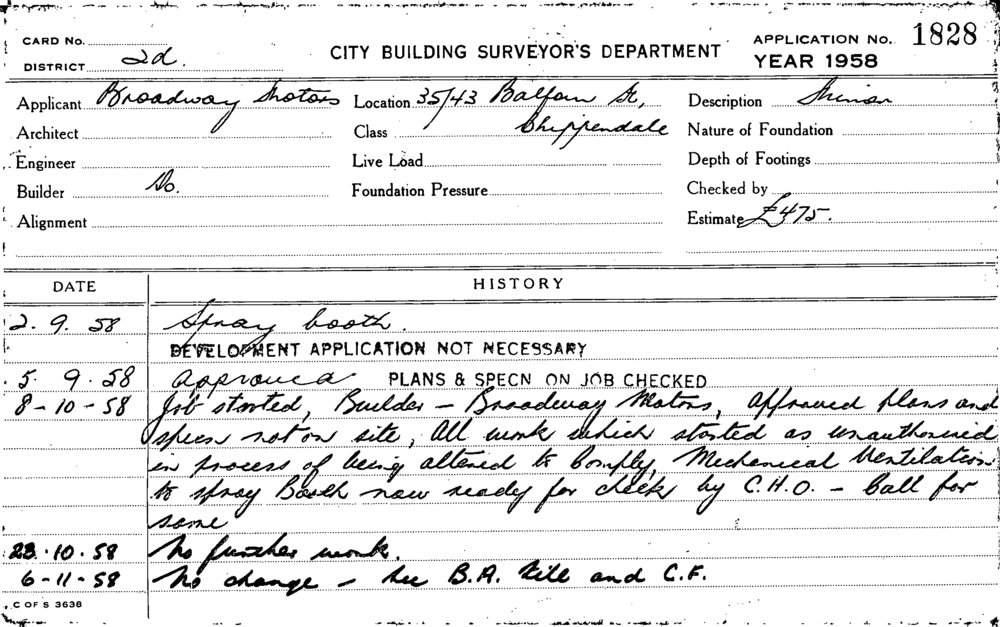 CARD No.
DISTRICT 2d.
CITY BUILDING SURVEYOR'S DEPARTMENT
APPLICATION No. 1828
YEAR 1958
Applicant Broadway Motors Location 35/43 Balfour St, Description Minor
Architect Class Chippendale Nature of Foundation
Engineer Live Load Depth of Footings
Builder Do. Foundation Pressure Checked by
Alignment Estimate £475.
DATE HISTORY
2. 9. 58 Spray booth.
DEVELOPMENT APPLICATION NOT NECESSARY
5. 9. 58 Approved PLANS & SPECN ON JOB CHECKED
8-10-58 Job started, Builder - Broadway Motors, Approved plans and
specn not on site, All work which started as unauthorised
in process of being altered to Comply, Mechanical Ventilation
to spray Booth now ready for check by C.H.O. - Call for
same
23.10.58 No further work.
6-11-58 No change - See B.A. File and C.F.
C OF S 3638